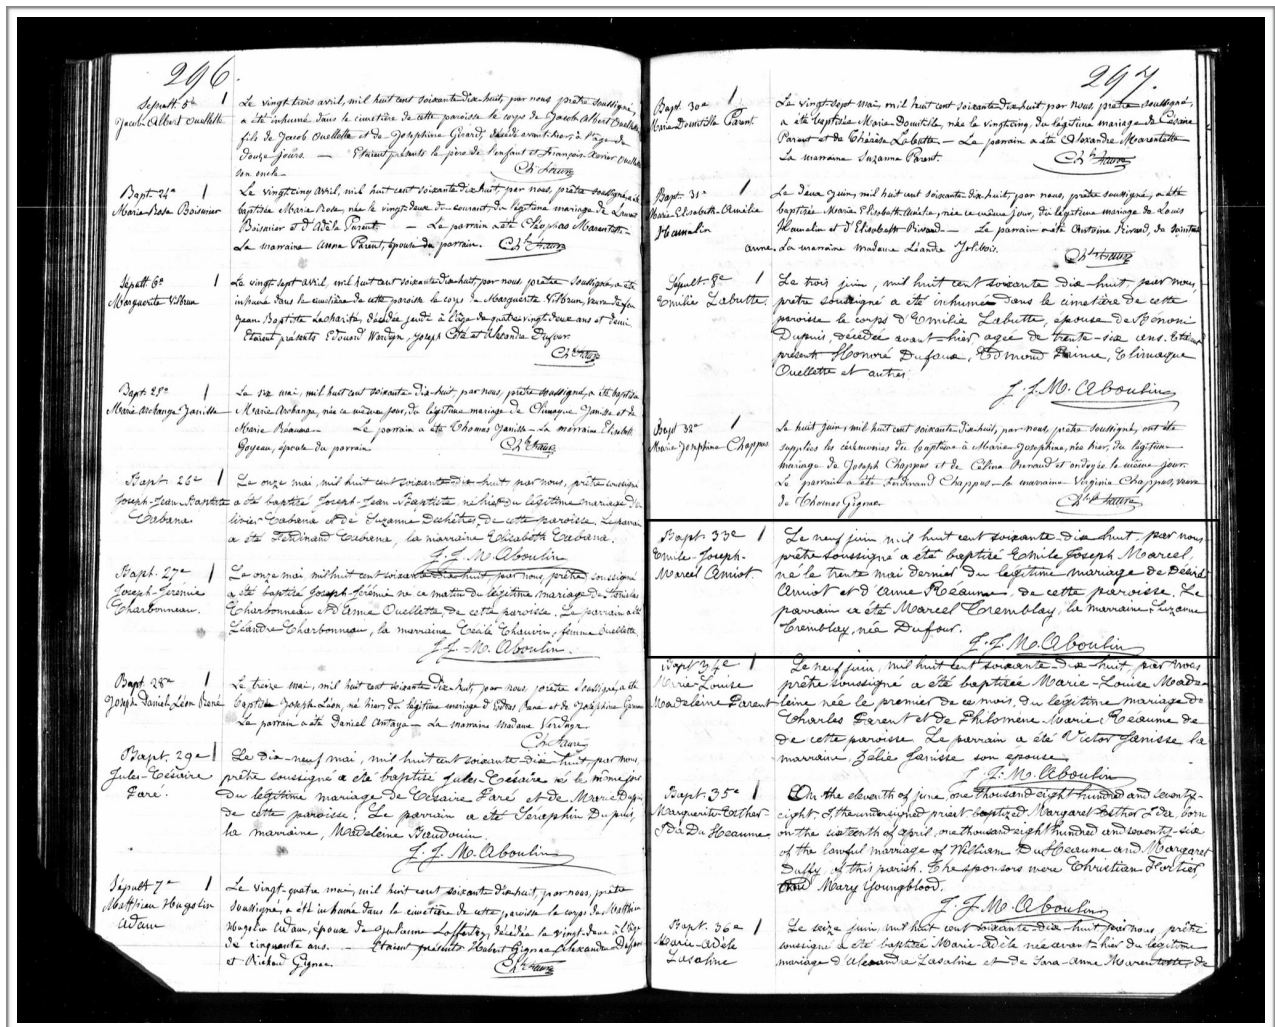 296.
Sépult 5e 1
Jacob Albert Ouellette
Le vingt trois avril, mil huit cent soixante dix-huit, par nous prêtre soussigné,
a été inhumé dans le cimetière de cette paroisse le corps de Jacob Albert Ouellette
fils de Jacob Ouellette et de Josephine Girard, décédé avant hier, à l'âge de
douze jours. — Etaient présents le père de l'enfant et François-Xavier Ouellette
son oncle.
Ch. Faure
Bapt. 24e 1
Marie-Rose Boismier
Le vingt cinq avril, mil huit cent soixante dix-huit, par nous, prêtre soussigné, a été
baptisée Marie Rose, née le vingt-deux du courant, du légitime mariage de
Boismier et d'Adèle Parent. — Le parrain a été Cléophas Marentette.
La marraine Anna Parent, épouse du parrain. Ch. Faure
Sépult 6e 1
Marguerite Vilbrun
Le vingt sept avril, mil huit cent soixante dix-huit, par nous, prêtre soussigné, a été
inhumé dans le cimetière de cette paroisse le corps de Marguerite Vilbrun, veuve de feu
Jean Baptiste Lacharité, décédée jeudi à l'âge de quatre vingt deux ans et demi.
Etaient présents Edouard Joseph Côté et Alexandre Dufour.
Ch. Faure
Bapt. 25e 1
Marie Archange Janisse
mai, mil huit cent soixante-dix-huit, par nous, prêtre soussigné, a été baptisée
Marie Archange, née ce même jour, du légitime mariage de Climaque Janisse et de
Marie Réaume. Le parrain a été Thomas Janisse. La marraine Elisabeth
Goyeau, épouse du parrain.
Ch. Faure
Bapt. 26e 1
Joseph-Jean-Baptiste
Cabana.
Le onze mai, mil huit cent soixante-dix-huit par nous, prêtre soussigné
a été baptisé Joseph-Jean-Baptiste né hier du légitime mariage d'O-
livier Cabana et de Suzanne Deshêtres, de cette paroisse. Le parrain
a été Ferdinand Cabana, la marraine Elisabeth Cabana.
J. J. M. Aboulin
Bapt. 27e 1
Joseph-Jérémie
Charbonneau.
Le onze mai, mil huit cent soixante-dix-huit, par nous, prêtre soussigné
a été baptisé Joseph-Jérémie né ce matin du légitime mariage de Stanislas
Charbonneau et d'Anne Ouellette, de cette paroisse. Le parrain a été
Léandre Charbonneau, la marraine Cécile Chauvin, femme Ouellette.
J. J. M. Aboulin.
Bapt. 28e 1
Joseph Daniel Léon René
Le treize mai, mil huit cent soixante dix-huit, par nous prêtre soussigné, a été
baptisé Joseph-Léon, né hier du légitime mariage d'Esdras René et de Joséphine
Le parrain a été Daniel Antaya — La marraine Madame
Ch. Faure
Bapt. 29e 1
Jules-Césaire
Paré.
Le dix-neuf mai, mil huit cent soixante dix-huit, par nous,
prêtre soussigné a été baptisé Jules-Césaire né le même jour
du légitime mariage de Césaire Paré et de Marie Dupuis
de cette paroisse. Le parrain a été Séraphin Dupuis,
la marraine, Madeleine Beaudouin.
J. J. M. Aboulin
Sépult 7e 1
Matthieu Hugolin
Adam
Le vingt-quatre mai, mil huit cent soixante dix-huit, par nous, prêtre
soussigné, a été inhumé dans le cimetière de cette paroisse le corps de Matthieu
Hugolin Adam, époux de Guilaume Lafferty, décédé le vingt-deux à l'âge
de cinquante ans. — Etaient présents Hubert Gignac, Alexandre Dufour
et Richard Gignac.
Ch. Faure
297.
Bapt. 30e 1
Marie Domitille Parent.
Le vingt sept mai, mil huit cent soixante dix-huit par nous prêtre soussigné,
a été baptisée Marie Domitille, née le vingt cinq, du légitime mariage de Césaire
Parent et de Thérèse Labutte — Le parrain a été Alexandre Marentette
La marraine Suzanne Parent. Ch. Faure
Bapt. 31e 1
Marie Elisabeth-Amélie
Hamelin
Le deux juin, mil huit cent soixante dix-huit, par nous, prêtre soussigné, a été
baptisée Marie Elisabeth Amélie, née ce même jour, du légitime mariage de Louis
Hamelin et d'Elisabeth Rivard — Le parrain a été Antoine Rivard, de Sainte
anne. La marraine madame Léandre Jolibois.
Ch. Faure
Sépult. 8e 1
Emilie Labutte.
Le trois juin, mil huit cent soixante dix-huit, par nous,
prêtre soussigné a été inhumé dans le cimetière de cette
paroisse le corps d'Emilie Labutte, épouse de Bénoni
Dupuis, décédée avant-hier agée de trente-six ans. Etaient
présents Honoré Dufaux, Edmond Prince, Climaque
Ouellette et autres.
J. J. M. Aboulin
Bapt 32e 1
Marie Josephine Chappus
Le huit juin, mil huit cent soixante-dix-huit, par nous, prêtre soussigné, ont été
supplées les cérémonies du baptême à Marie Josephine, née hier, du légitime
mariage de Joseph Chappus et de Célina Renaud et ondoyée le même jour.
Le parrain a été Ferdinand Chappus — la marraine Virginie Chappus, veuve
de Thomas Gignac.
Ch. Faure
Bapt. 33e 1
Emile-Joseph-
Marcel Amiot.
Le neuf juin mil huit cent soixante dix-huit, par nous
prêtre soussigné a été baptisé Emile Joseph Marcel,
né le trente mai dernier du légitime mariage de Désiré
Amiot et d'Anne Réaume, de cette paroisse. Le
parrain a été Marcel Tremblay, la marraine, Suzanne
Tremblay, née Dufour.
J. J. M. Aboulin
Bapt 34e 1
Marie-Louise
Madeleine Parent
Le neuf juin, mil huit cent soixante-dix-huit, par nous
prêtre soussigné a été baptisée Marie-Louise Made-
leine née le premier de ce mois, du légitime mariage de
Charles Parent et de Philomène Marie Réaume de
de cette paroisse. Le parrain a été Victor Janisse la
marraine, Zélie Janisse son épouse.
J. J. M. Aboulin
Bapt. 35e 1
Marguerite-Esther
Ida Du Heaume
On the eleventh of june, one thousand eight hundred and seventy-
eight, I the undersigned priest baptized Margaret Esther Ida, born
on the sixteenth of april, one thousand eight hundred and seventy-six
of the lawful marriage of William DuHeaume and Margaret
Duffy, of this parish. The sponsors were Christian Fortier
and Mary Youngblood.
J. J. M. Aboulin
Bapt. 36e 1
Marie-Adèle
Lasaline
Le seize juin, mil huit cent soixante-dix-huit par nous, prêtre
soussigné a été baptisée Marie-Adèle née avant-hier du légitime
mariage d'Alexandre Lasaline et de Sara-Anne Marentette, de